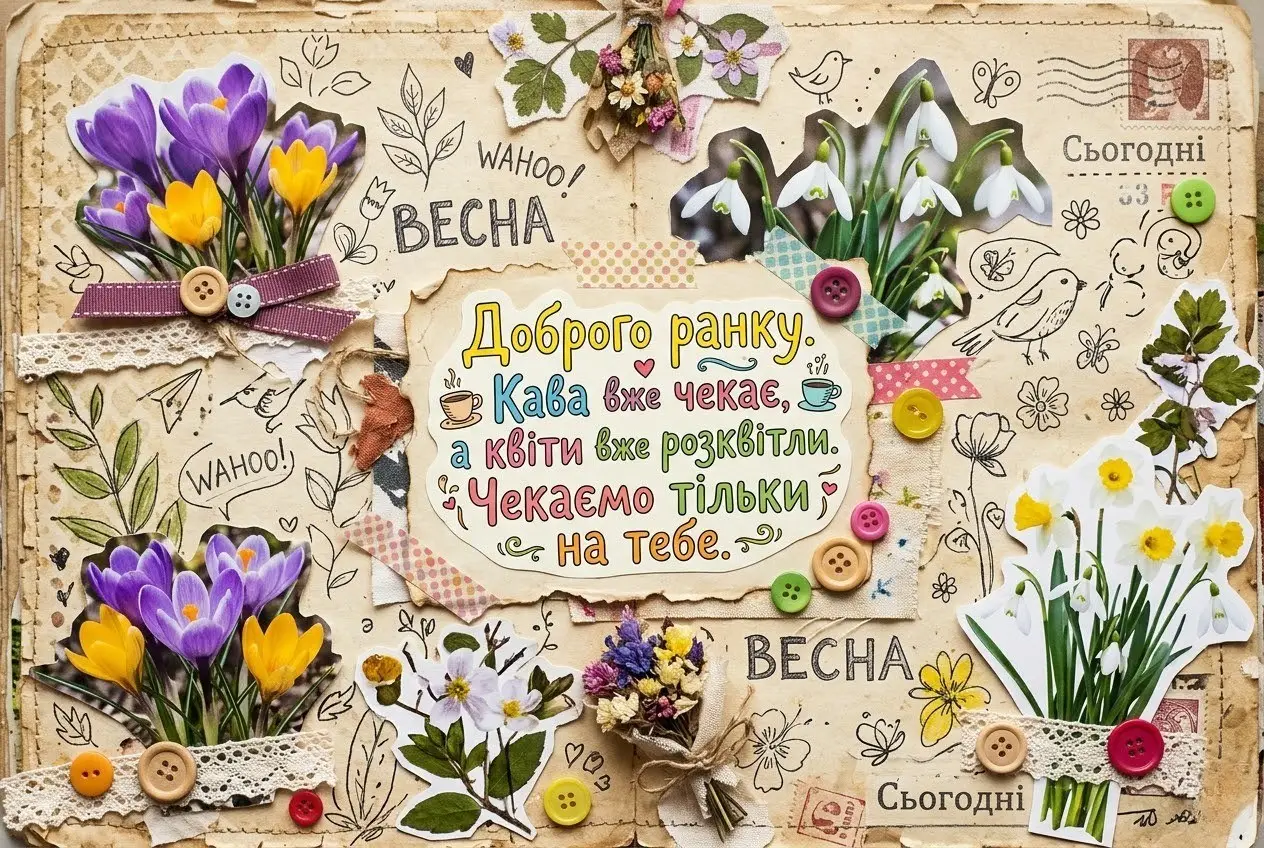 WAHOO!
ВЕСНА
Сьогодні
Доброго ранку.
Кава вже чекає,
а квіти вже розквітли.
Чекаємо тільки
на тебе.
WAHOO!
ВЕСНА
Сьогодні